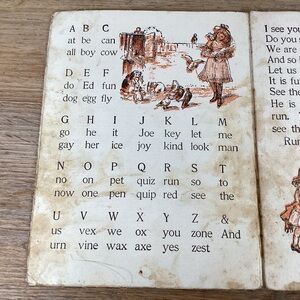 A B C
at be can
all boy cow
D E F
do Ed fun
dog egg fly
G H I J K L M
go he it Joe key let me
gay her ice joy kind look man
N O P Q R S T
no on pet quiz run so to
now one pen quip red see the
U V W X Y Z &
us vex we ox you zone And
urn vine wax axe yes zest
I see you
Do you s
We are
And so
Let us
It is fu
See the
He is
run.
see the
Ru